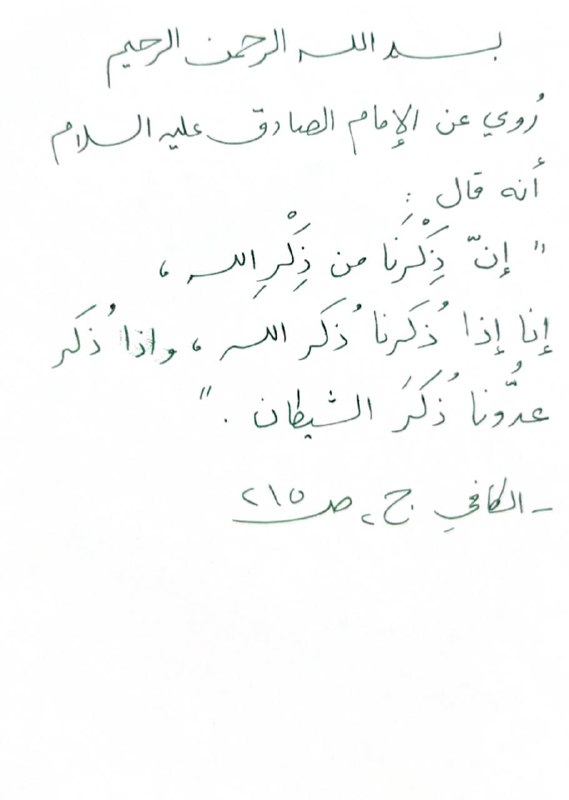 بسم الله الرحمن الرحيم
رُوي عن الإمام الصادق عليه السلام
أنه قال :
" إنّ ذِكْرَنَا من ذِكْرِ الله ،
إنا إذا ذُكرنا ذُكر الله ، واذا ذُكر
عدُّونا ذُكَرَ الشيطان . "
- الكافي ج٢ ص ٢١٥